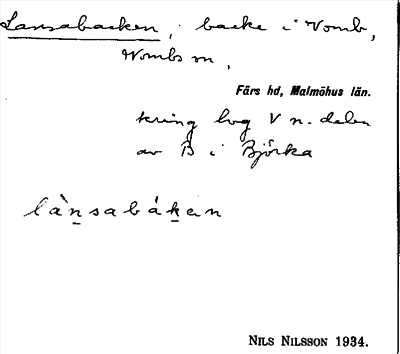 Lansabacken, backe i Vomb,
Vombs sn,
Färs hd, Malmöhus län.
kring lvg V n. delen
av B i Björka
lànsabákan
NILS NILSSON 1934.